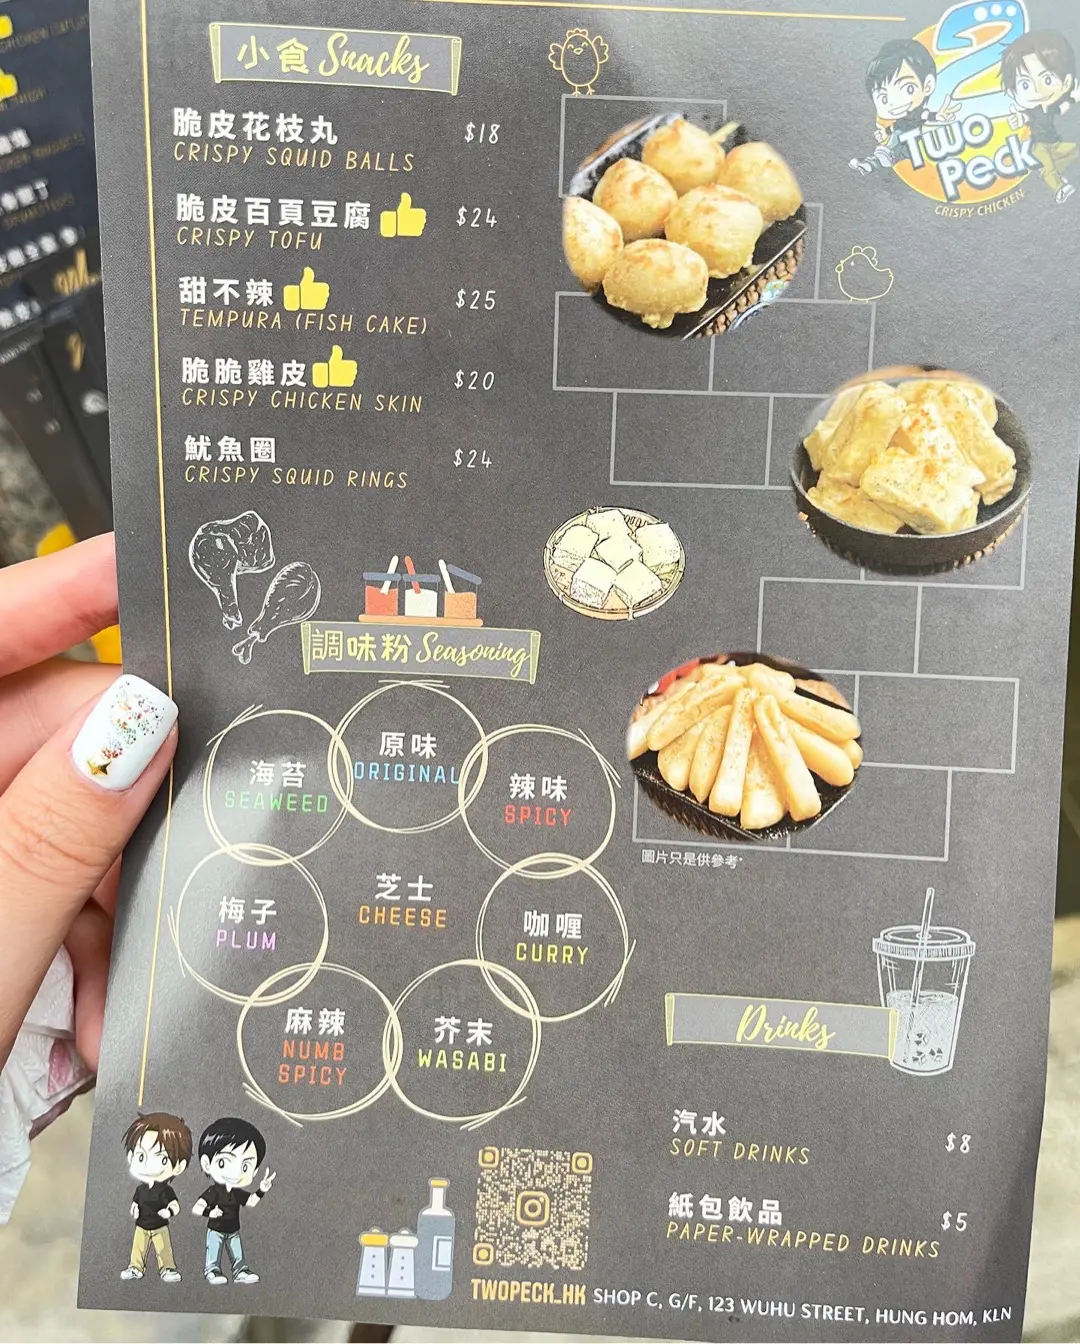 小食 Snacks
脆皮花枝丸 $18
CRISPY SQUID BALLS
脆皮百頁豆腐 $24
CRISPY TOFU
甜不辣 $25
TEMPURA (FISH CAKE)
脆脆雞皮 $20
CRISPY CHICKEN SKIN
魷魚圈 $24
CRISPY SQUID RINGS
2
Two
Peck
CRISPY CHICKEN
調味粉 Seasoning
原味
ORIGINAL
海苔
SEAWEED
辣味
SPICY
芝士
CHEESE
梅子
PLUM
咖喱
CURRY
麻辣
NUMB
SPICY
芥末
WASABI
圖片只是供參考*
Drinks
汽水 $8
SOFT DRINKS
紙包飲品 $5
PAPER-WRAPPED DRINKS
TWOPECK_HK SHOP C, G/F, 123 WUHU STREET, HUNG HOM, KLN